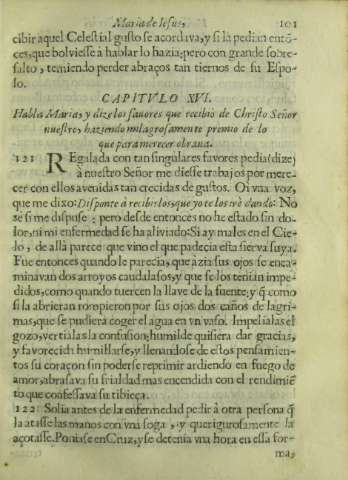 Maria de Iesus, 101
cibir aquel Celestial gusto se acordiva, y si la pedian entõ-
ces, que bolviesse à hablar lo hazia; pero con grande sobre-
salto, temiendo perder abraços tan tiernos de su Espo-
so.
CAPITVLO XVI.
Habla Maria, y dize los favores que recibiò de Christo Señor
nuestro, haziendo milagrosamente premio de lo
que para merecer obrava.
121 REgalada con tan singulares favores pedia (dize)
à nuestro Señor me diesse trabajos por mere-
cer con ellos avenidas tan crecidas de gustos. Oì vna voz,
que me dixo: Disponte à recibirlos, que yo te los irè dando: No
sè si me dispuse; pero desde entonces no he estado sin do-
lor, ni mi enfermedad se ha aliviado: Si ay males en el Cie-
lo, de allà parece que vino el que padecia esta sierva suya.
Fue entonces quando le parecia, que àzia sus ojos se enca-
minavan dos arroyos caudalosos, y que se los tenian impe-
didos, como quando tuercen la llave de la fuente; y q̃ como
si la abrieran rompieron por sus ojos dos caños de lagri-
mas, que se pudiera coger el agua en vn vaso. Impelialas el
gozo, vertialas la confusion; humilde quisiera dar gracias,
y favorecida humillarse, y llenandose de estos pensamien-
tos su coraçon sin poderse reprimir ardiendo en fuego de
amor, abrasava su frialdad mas encendida con el rendimiẽ
to que confessava su tibieça.
122 Solia antes de la enfermedad pedir à otra persona q̃
la atasse las manos con vna soga, y que rigurosamente la
açotasse. Poniase en Cruz, y se detenia vna hora en essa for-
ma,